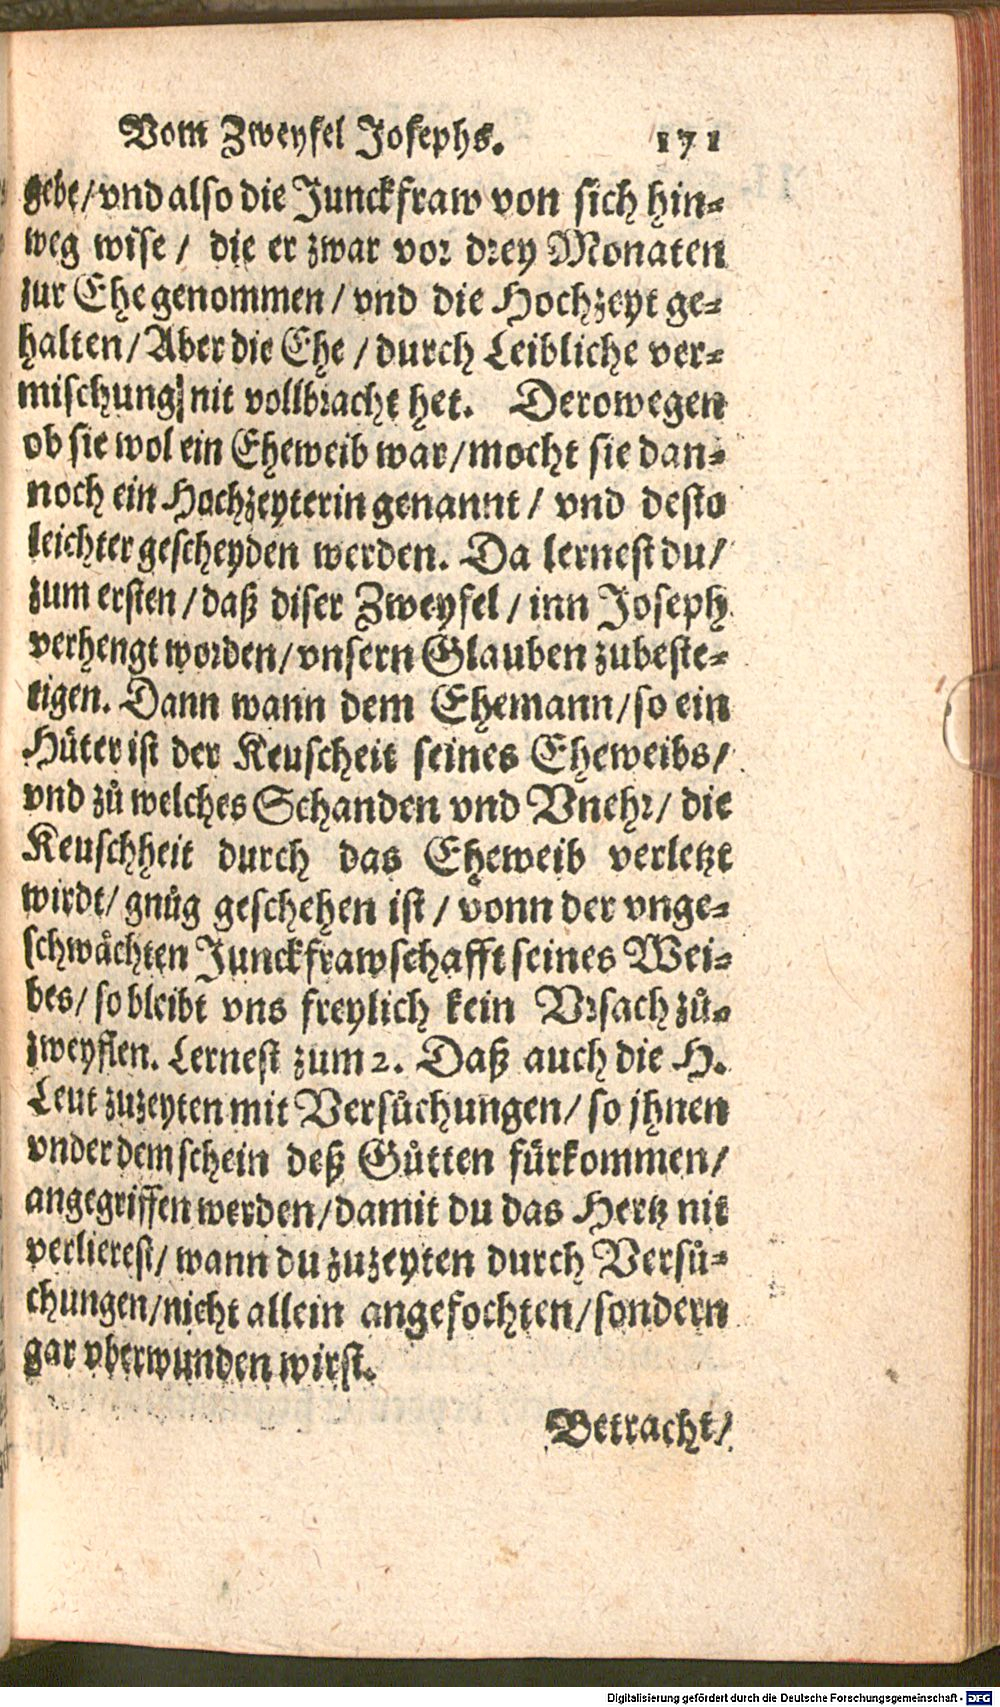 Vom Zweyfel Josephs. 171
gebe/ vnd also die Junckfraw von sich hin-
weg wise / die er zwar vor drey Monaten
zur Ehe genommen / vnd die Hochzeyt ge-
halten / Aber die Ehe / durch Leibliche ver-
mischung / nit vollbracht het. Derowegen
ob sie wol ein Eheweib war / mocht sie dan-
noch ein Hochzeyterin genannt / vnd desto
leichter gescheyden werden. Da lernest du /
zum ersten / daß diser Zweyfel / inn Joseph
verhengt worden / vnsern Glauben zubeste-
tigen. Dann wann dem Ehemann / so ein
Hüter ist der Keuscheit seines Eheweibs /
vnd zů welches Schanden vnd Vnehr / die
Keuschheit durch das Eheweib verletzt
wirdt / gnůg geschehen ist / vonn der vnge-
schwåchten Junckfrawschafft seines Wei-
bes / so bleibt vns freylich kein Vrsach zů-
zweyflen. Lernest zum 2. Daß auch die H.
Leut zuzeyten mit Versůchungen / so jhnen
vnder dem schein deß Gůtten fürkommen /
angegriffen werden / damit du das Hertz nit
verlierest / wann du zuzeyten durch Versů-
chungen / nicht allein angefochten / sondern
gar vberwunden wirst.
Betracht /
Digitalisierung gefördert durch die Deutsche Forschungsgemeinschaft - DFG